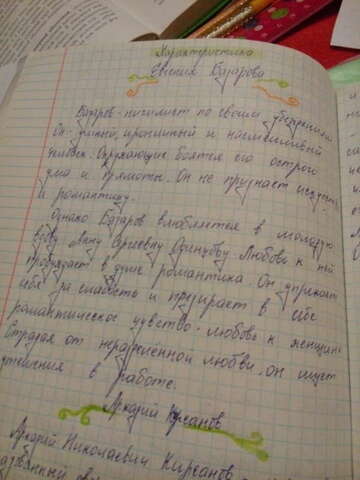 Характеристика
Евгения Базарова
Базаров - нигилист по своим убеждениям.
Он умный, ироничный и насмешливый
человек. Окружающие боятся его острого
ума и прямоты. Он не признает искусство
и романтику.
Однако Базаров влюбляется в молодую
вдову Анну Сергеевну Одинцову. Любовь к ней
пробуждает в душе романтика. Он упрекает
себя за слабость и презирает в себе
романтическое чувство - любовь к женщине
Страдая от неразделённой любви, он ищет
утешения в работе.
Аркадий Кирсанов
Аркадий Николаевич Кирсанов